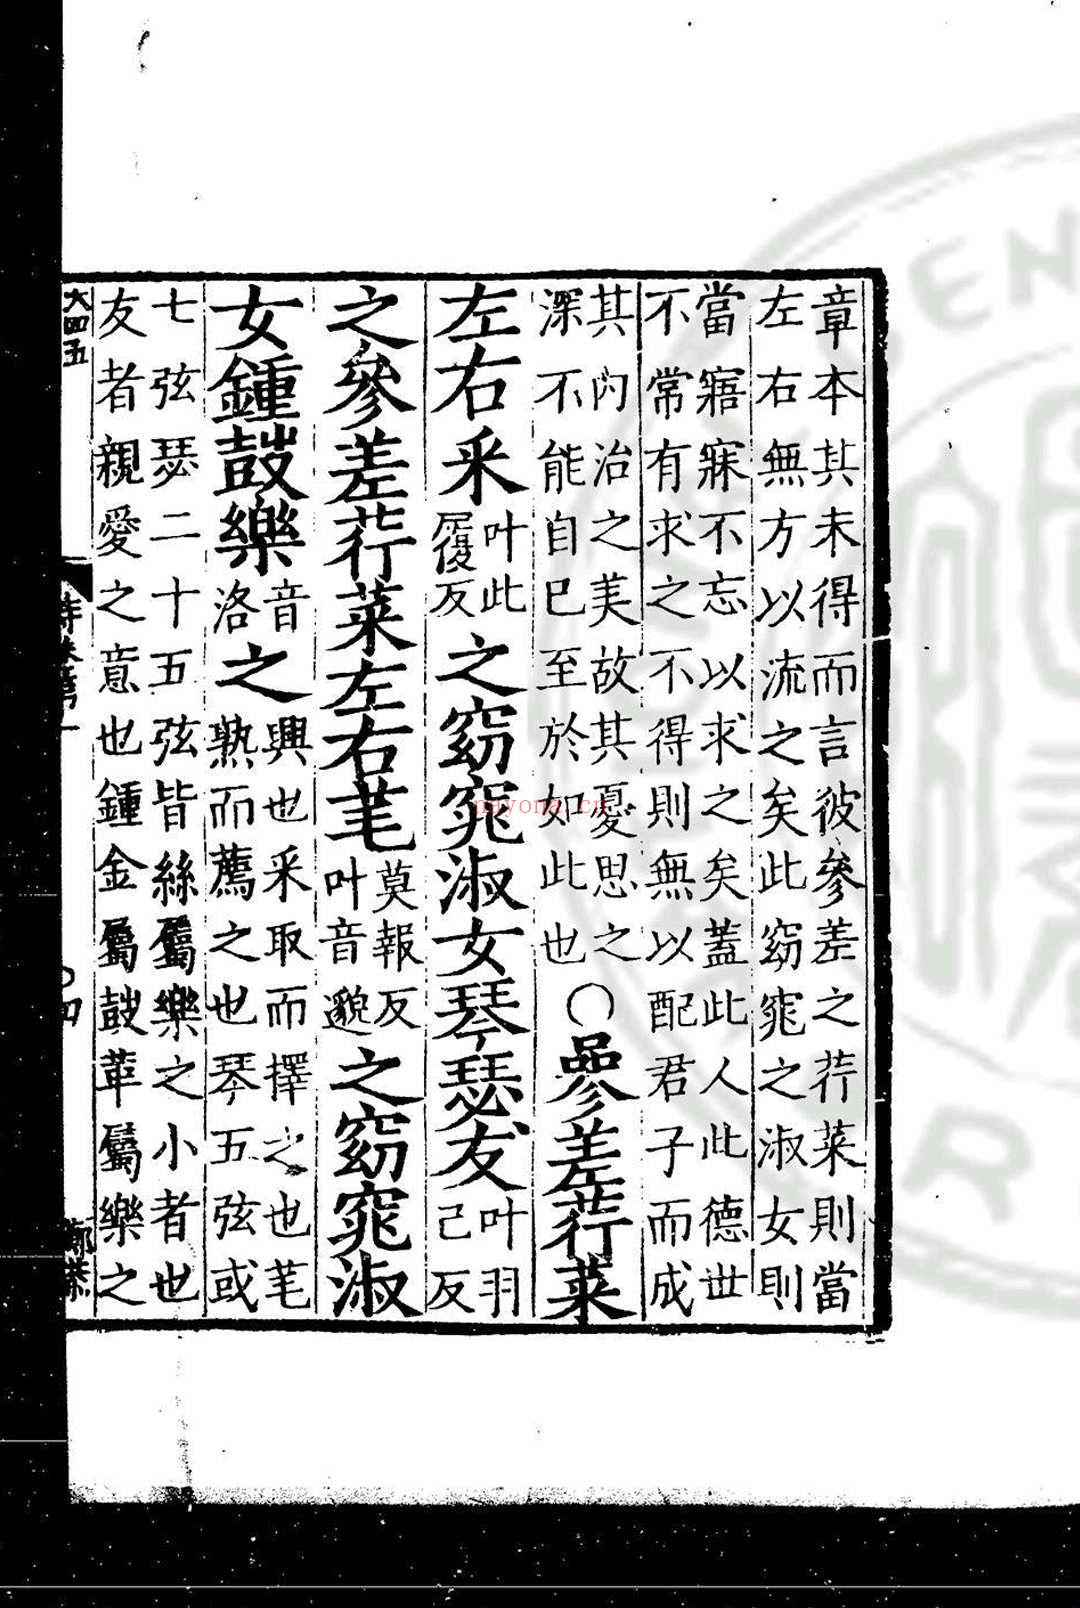 章本其未得而言彼參差之荇菜則當
左右無方以流之矣此窈窕之淑女則
當寤寐不忘以求之矣蓋此人此德世
不常有求之不得則無以配君子而成
其内治之美故其憂思之
深不能自已至於如此也
○參差荇菜
左右采叶此履反之窈窕淑女琴瑟友叶羽己反
之參差荇菜左右芼莫報反叶音邈之窈窕淑
女鍾鼓樂音洛之
興也采取而擇之也芼
熟而薦之也琴五弦或
七弦瑟二十五弦皆絲屬樂之小者也
友者親愛之意也鍾金屬鼓革屬樂之
大四五
四
nayona.cn